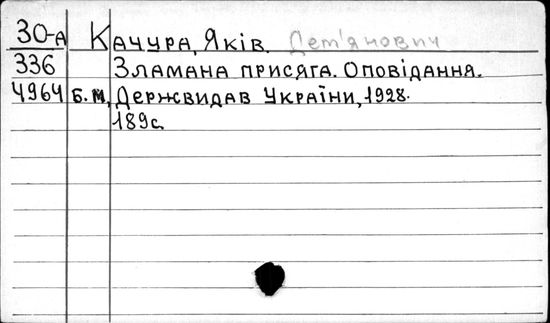 30-А Качура, Яків. Дем'янович
336 Зламана присяга. Оповідання.
4964 Б.М, Держвидав України, 1928.
189с.